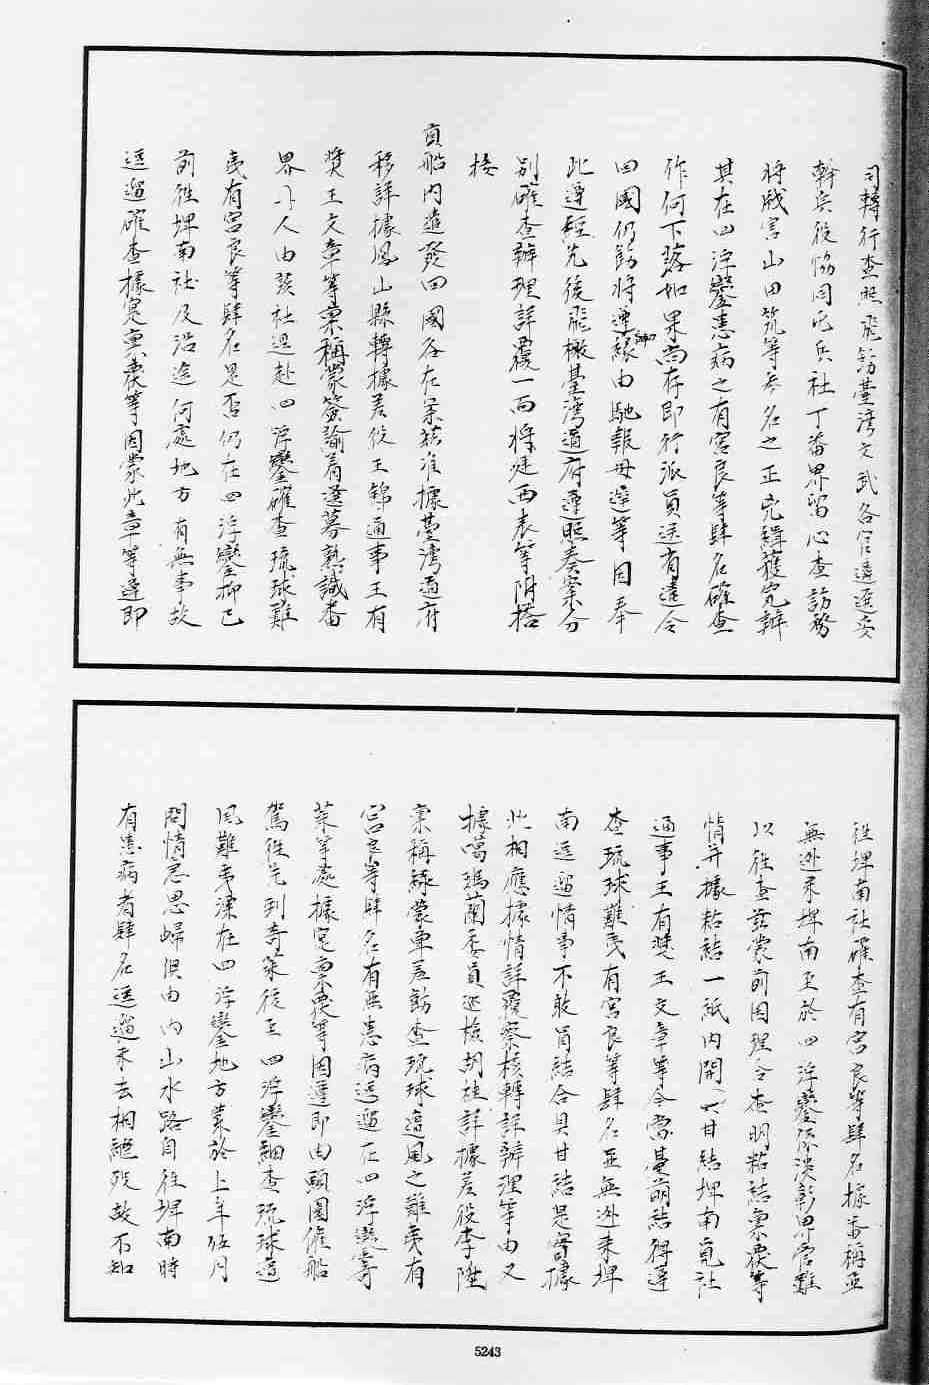 司轉行查照飛飭臺灣文武各官遴選妥
幹兵役協同屯兵社丁番界留心查訪務
將戕害山田筑等多名之正兇緝獲究辦
其在四浮鑾患病之有宮良等肆名確查
作何下落如果尚存即行派員送有遠令
回國仍飭將遭縁由馳報毋違等因奉
此遵經先後飛檄臺灣道府遵照奏案分
別確查辦理詳覆一面將廷西表等附搭
接
貢船內遣發回國各在案茲准據臺灣道府
移詳據鳳山縣轉據差役王錦通事王有
獎王文章等稟稱蒙簽諭着選募熟識番
界人由該社迴赴四浮鑾確查琉球難
夷有宮良等肆名是否仍在四浮鑾抑已
前往埤南社及沿途何處地方有無事故
逗遛確查據寔稟覆等因蒙此章等遵即
往埤南社確查有宮良等肆名據番稱並
無逃來埤南至於四浮鑾係淡彰界官難
以往查茲蒙前因理合查明粘結稟覆等
情并據粘結一紙內開具甘結埤南覓社
通事王有獎王文章等今當臺前結得遵
查琉球難民有宮良等肆名並無逃來埤
南逗遛情事不敢冒結合具甘結是實據
此相應據情詳覆察核轉詳辦理等由又
據噶瑪蘭委員巡檢胡桂詳據差役李陞
稟稱緣蒙票差飭查琉球遭風之難夷有
宮良等肆名有無患病逗遛在四浮鑾奇
萊等處據寔稟覆等因遵即由頭圍僱船
駕往先到奇萊後至四浮鑾細查琉球遭
風難夷漂在四浮鑾地方業於上年伍月
間情急思歸俱由內山水路自往埤南時
有患病者肆名逗遛未去相繼歿故不知
5243